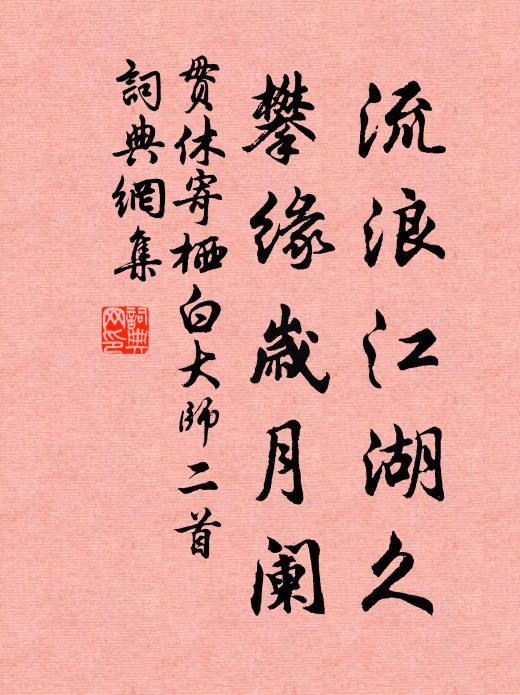 流浪江湖久
攀緣歲月闌
貫休寄栖白大師二首
詞典網集
詞典网印